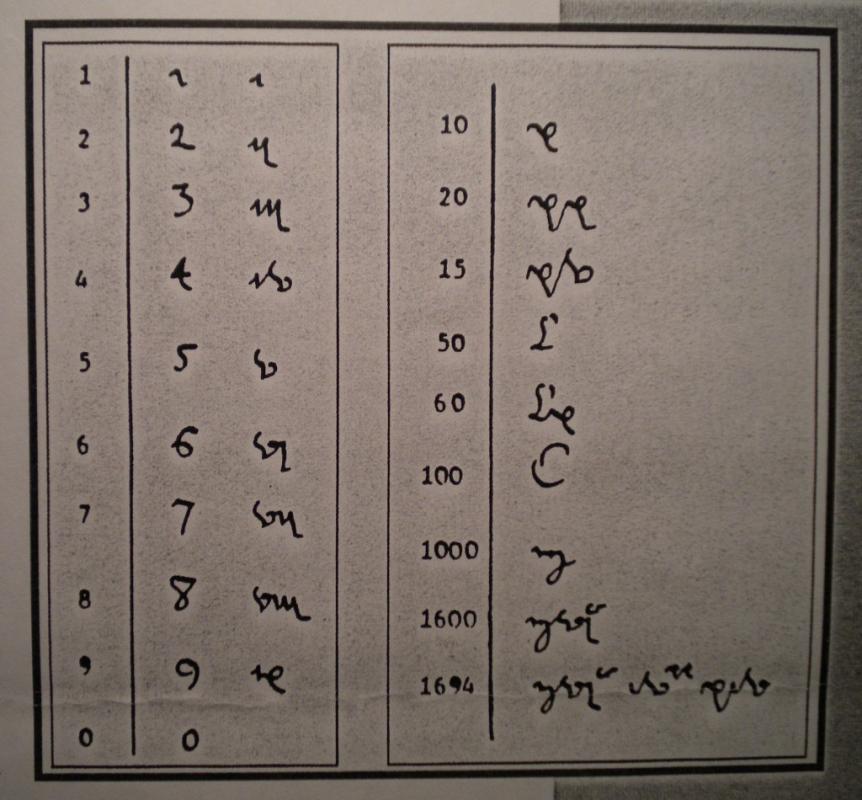 1 1 i
2 2 ij
3 3 iij
4 4 iv
5 5 v
6 6 vj
7 7 vij
8 8 viij
9 9 ix
0 0
10 x
20 xx
15 xv
50 L
60 Lx
100 C
1000 m
1600 mvjᶜ
1694 mvjᶜ ivˣˣ xiv